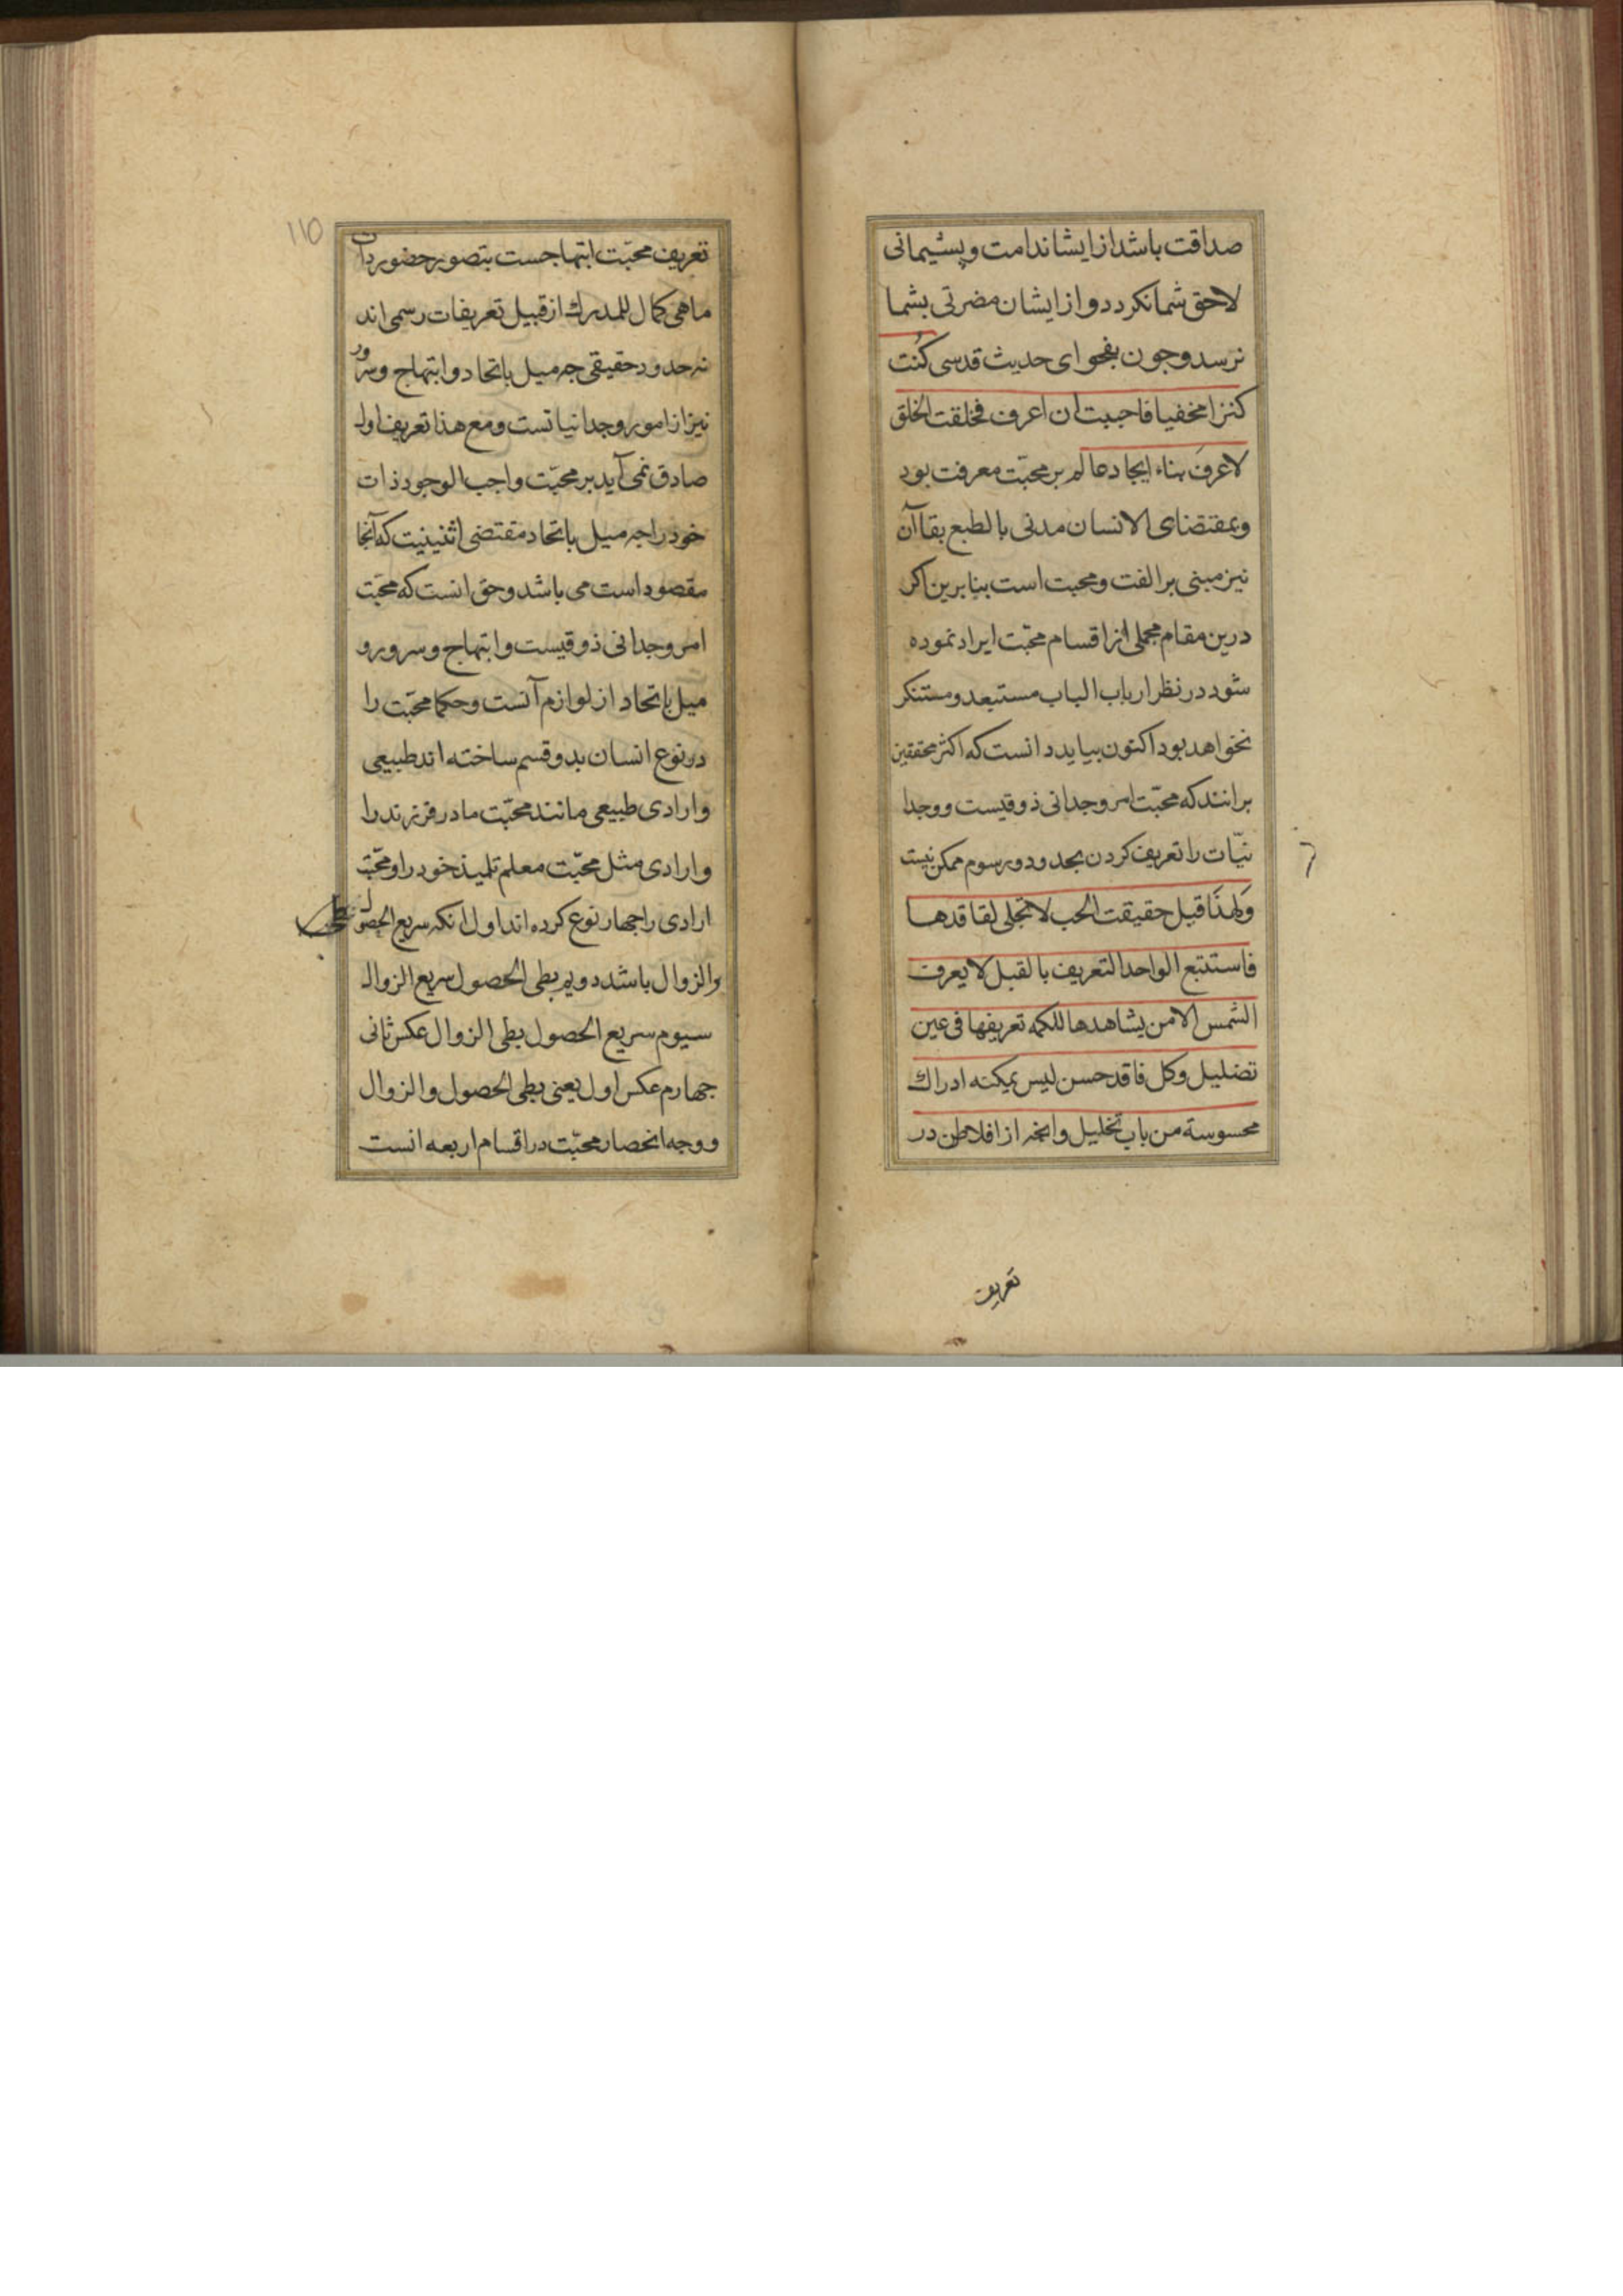 صداقت باشد از ایشان ندامت و پشیمانی
لاحق شما نکردد و از ایشان مضرتی بشما
نرسد و چون بفحوای حدیث قدسی کُنت
کنزا مخفیا فاحببت ان اعرف فخلقت الخلق
لاعرفَ بناء ایجاد عالم بر محبّت معرفت بود
و بمقتضای الانسان مدنی بالطبع بقاآن
نیز مبنی بر الفت و محبت است بنابرین اکر
درین مقام مجملی از اقسام محبّت ایراد نموده
شود در نظر ارباب الباب مستبعد و مستنکر
نخواهد بود اکنون بیاید دانست که اکثر محققین
برانند که محبّت امر وجدانی ذوقیست و وجدا
نیّات را تعریف کردن بحدود و رسوم ممکن نیست
وَلهذَا قیل حقیقت الحب لا تجلی لفاقدها
فاستتبع الواحد التعریف بالقبل لا یعرف
الشمس الا من یشاهدها للکمه تعریفها فی عین
تضلیل و کل فاقد حسن لیس یمکنه ادراك
محسوسة من باب تخلیل و انچه از افلاطن در
تعریف
۱۱۵
تعریف محبّت ابتهاجست بتصور حضور ذات
ما هی کمال للمدرك از قبیل تعریفات رسمی اند
نه حدود حقیقی چه میل باتحاد و ابتهاج و سرور
نیز از امور وجدانیاتست و مع هذا تعریف اول
صادق نمی آید بر محبّت واجب الوجود ذات
خود را چه میل باتحاد مقتضی اثنینیت که آنجا
مقصود است می باشد و حق انست که محبّت
امر وجدانی ذوقیست و ابتهاج و سرور و
میل باتحاد از لوازم آنست و حکما محبّت را
در نوع انسان بدو قسم ساخته اند طبیعی
و ارادی طبیعی مانند محبّت مادر فرزند را
و ارادی مثل محبّت معلم تلمیذ خود را و محبّت
ارادی را چهار نوع کرده اند اول انکه سریع الحصول
و الزوال باشد دویم بطی الحصول سریع الزوال
سیوم سریع الحصول بطی الزوال عکس ثانی
چهارم عکس اول یعنی بطی الحصول و الزوال
و وجه انحصار محبّت در اقسام اربعه انست